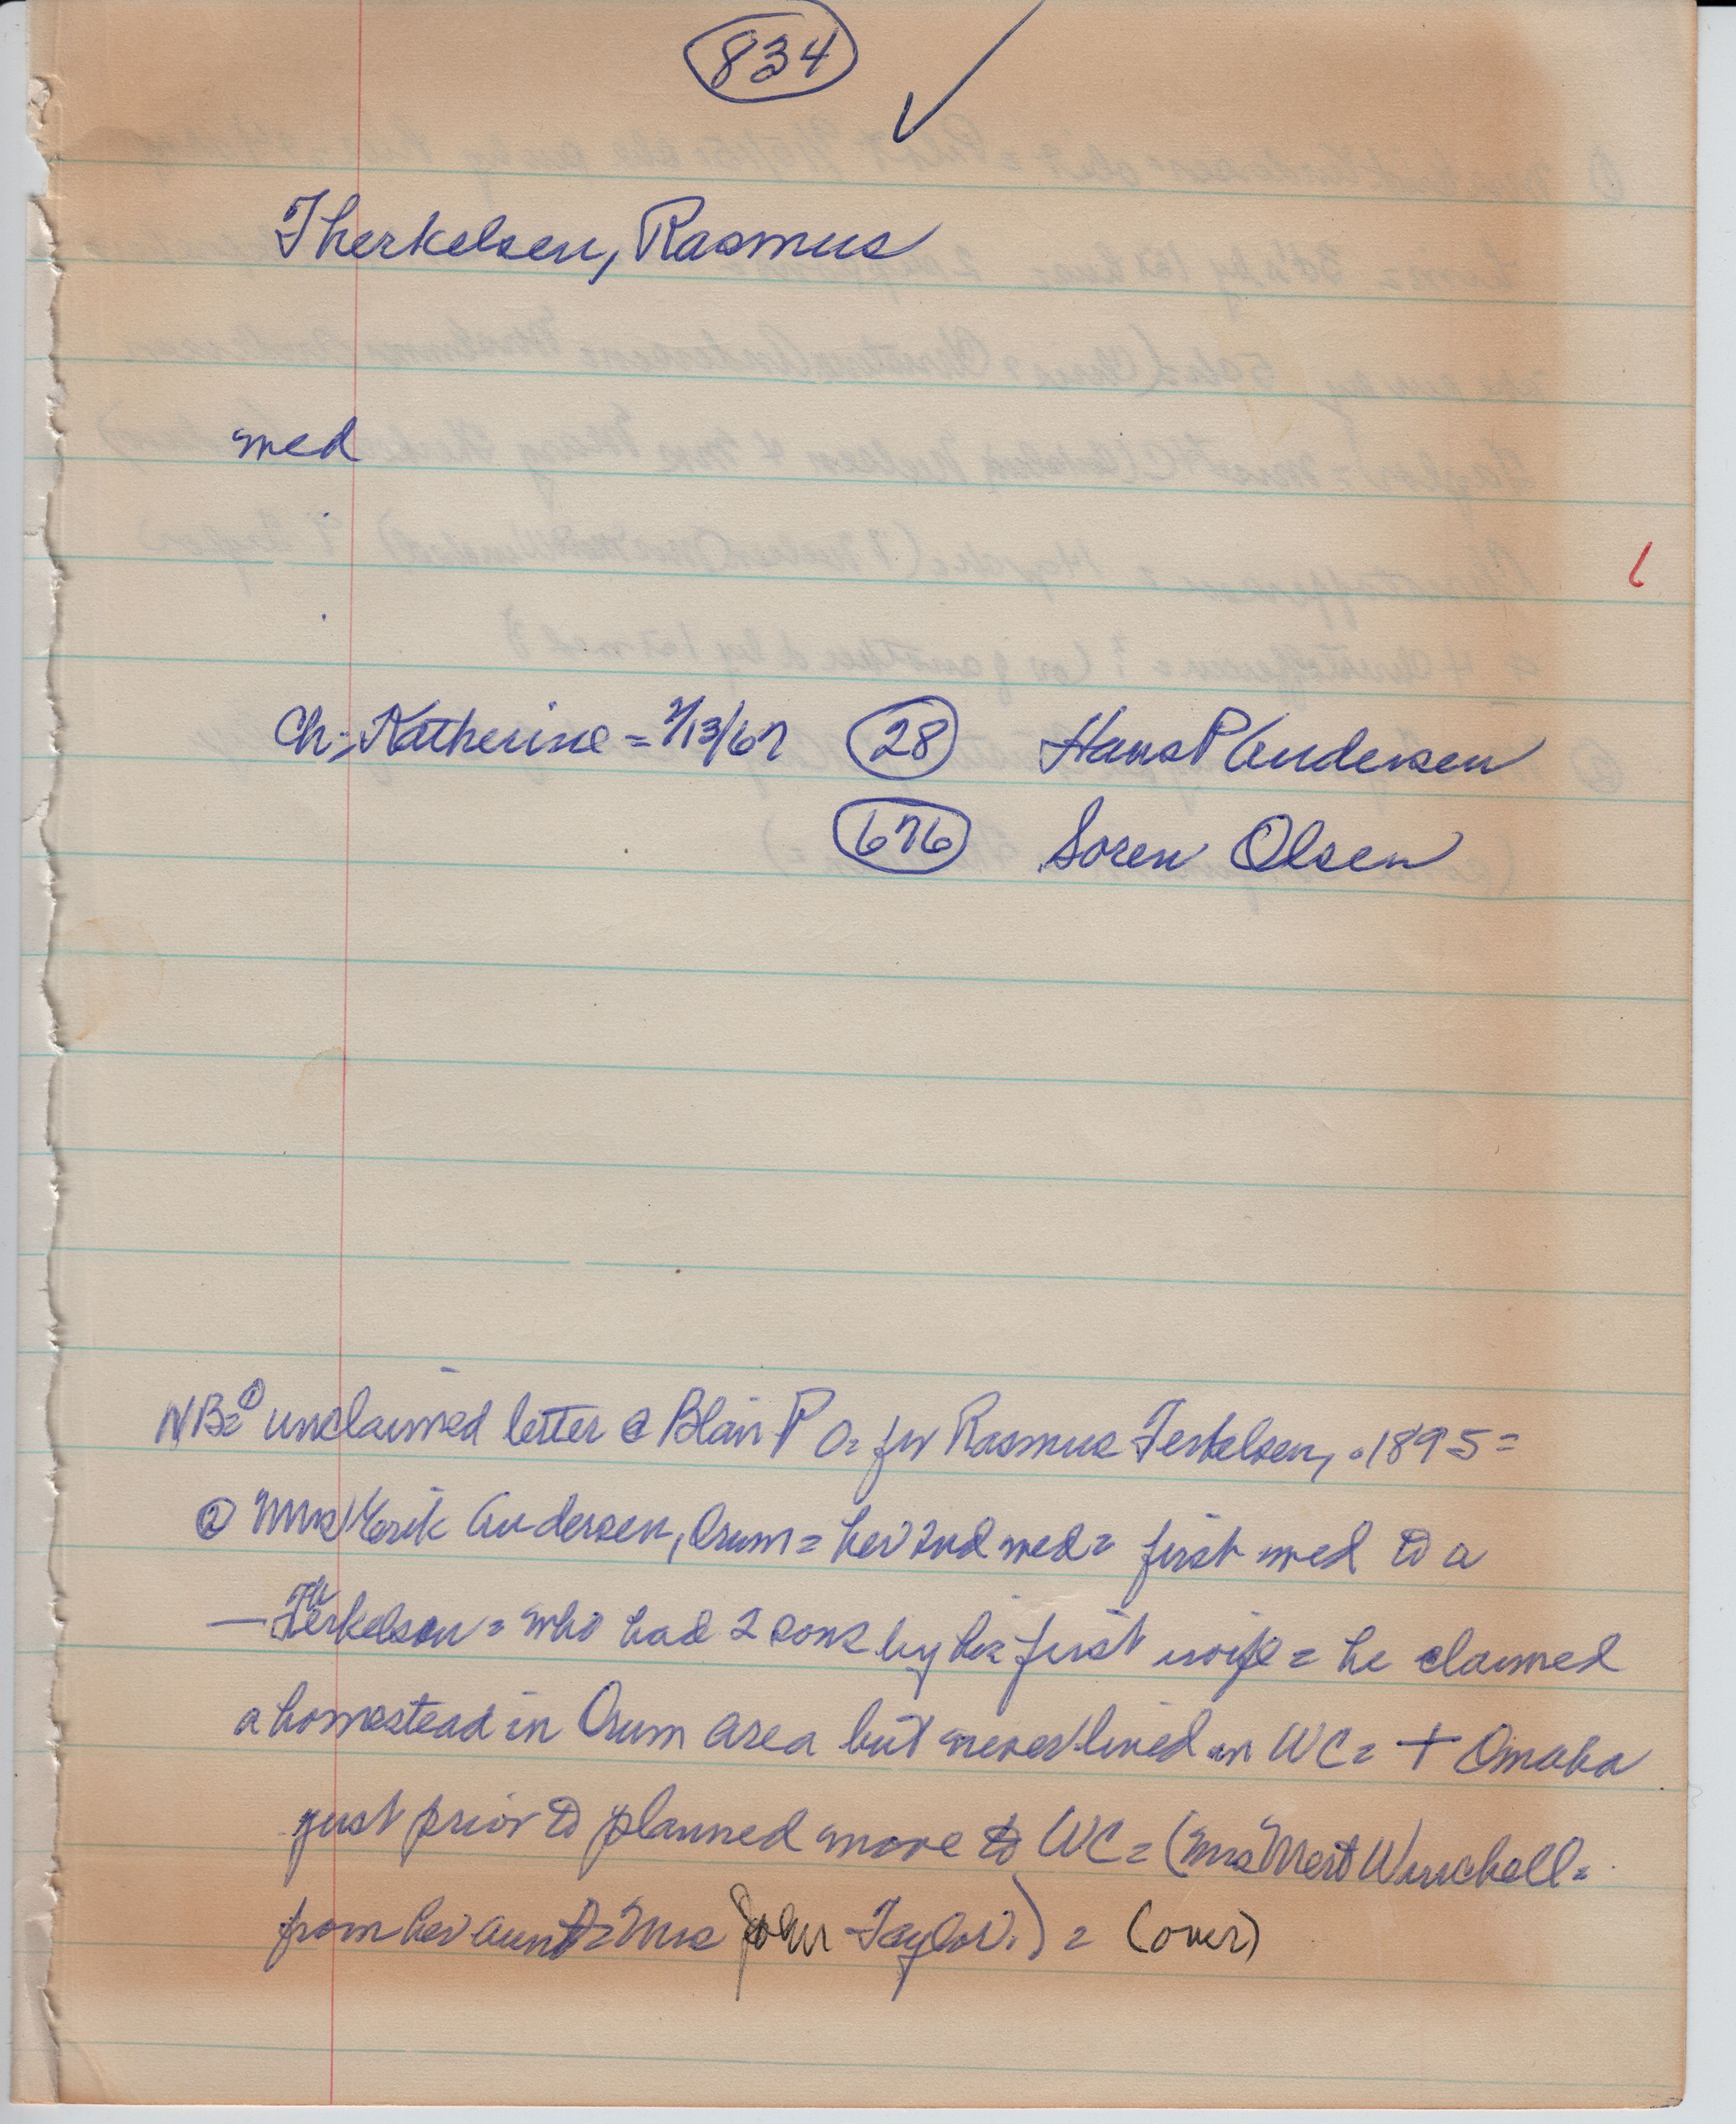 834 ✓
Therkelsen, Rasmus
med
Ch: Katherine = 7/13/67 28 Hans P Andersen
676 Soren Olsen
NB= ① unclaimed letter @ Blair P O = for Rasmus Terkelsen, 1895 =
② Mrs Erik Andersen, Orum = her 2nd med = first med to a
— Therkelson = who had 2 sons by his first wife = he claimed
a homestead in Orum area but never lived in WC = + Omaha
just prior to planned move to WC = (Mrs Mert Winchell =
from her aunt = Mrs John Taylor.) = (over)